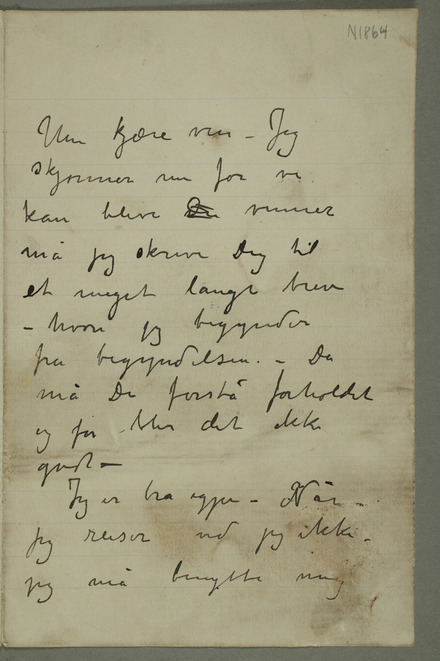 N1864
Min kjære ven – Jeg
skjønner nu før vi
kan blive venner
må jeg skrive Dig til
et meget langt brev
– hvori jeg begynder
fra begyndelsen. – Da
må De forstå forholdet
og før blir det ikke
godt –
Jeg er bra igjen – Når –
jeg reiser ved jeg ikke –
jeg må benytte mig